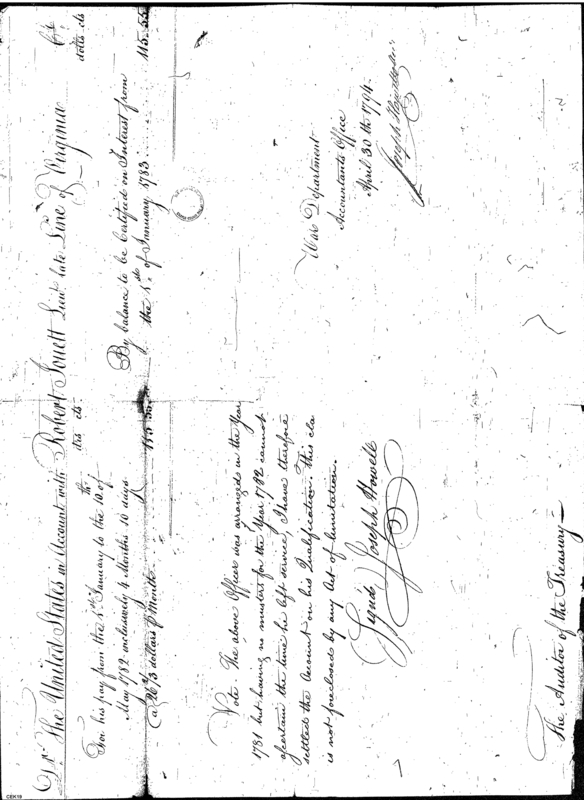 Dr. The United States in Account with Robert Jouett Lieut late Line of Virginia Cr
dlls cts. dolls cts
For his pay from the 1st January to the 10th of
May 1782 inclusively 4 Months 10 days
@ 26 2/3 dollars P Month 115.55
By balance to be Certified on Interest from
the 1st of January 1783 115.55
Note. The above Officer was arranged in the Year
1781 but having no musters for the Year 1782 cannot
ascertain the time he left service, I have therefore
settled the Account on his Qualification. This cla
is not foreclosed by any Act of limitation.
Signd Joseph Howell
War Department
Accountants Office
April 30th 1794.
Joseph Howell
The Auditor of the Treasury
CEK19